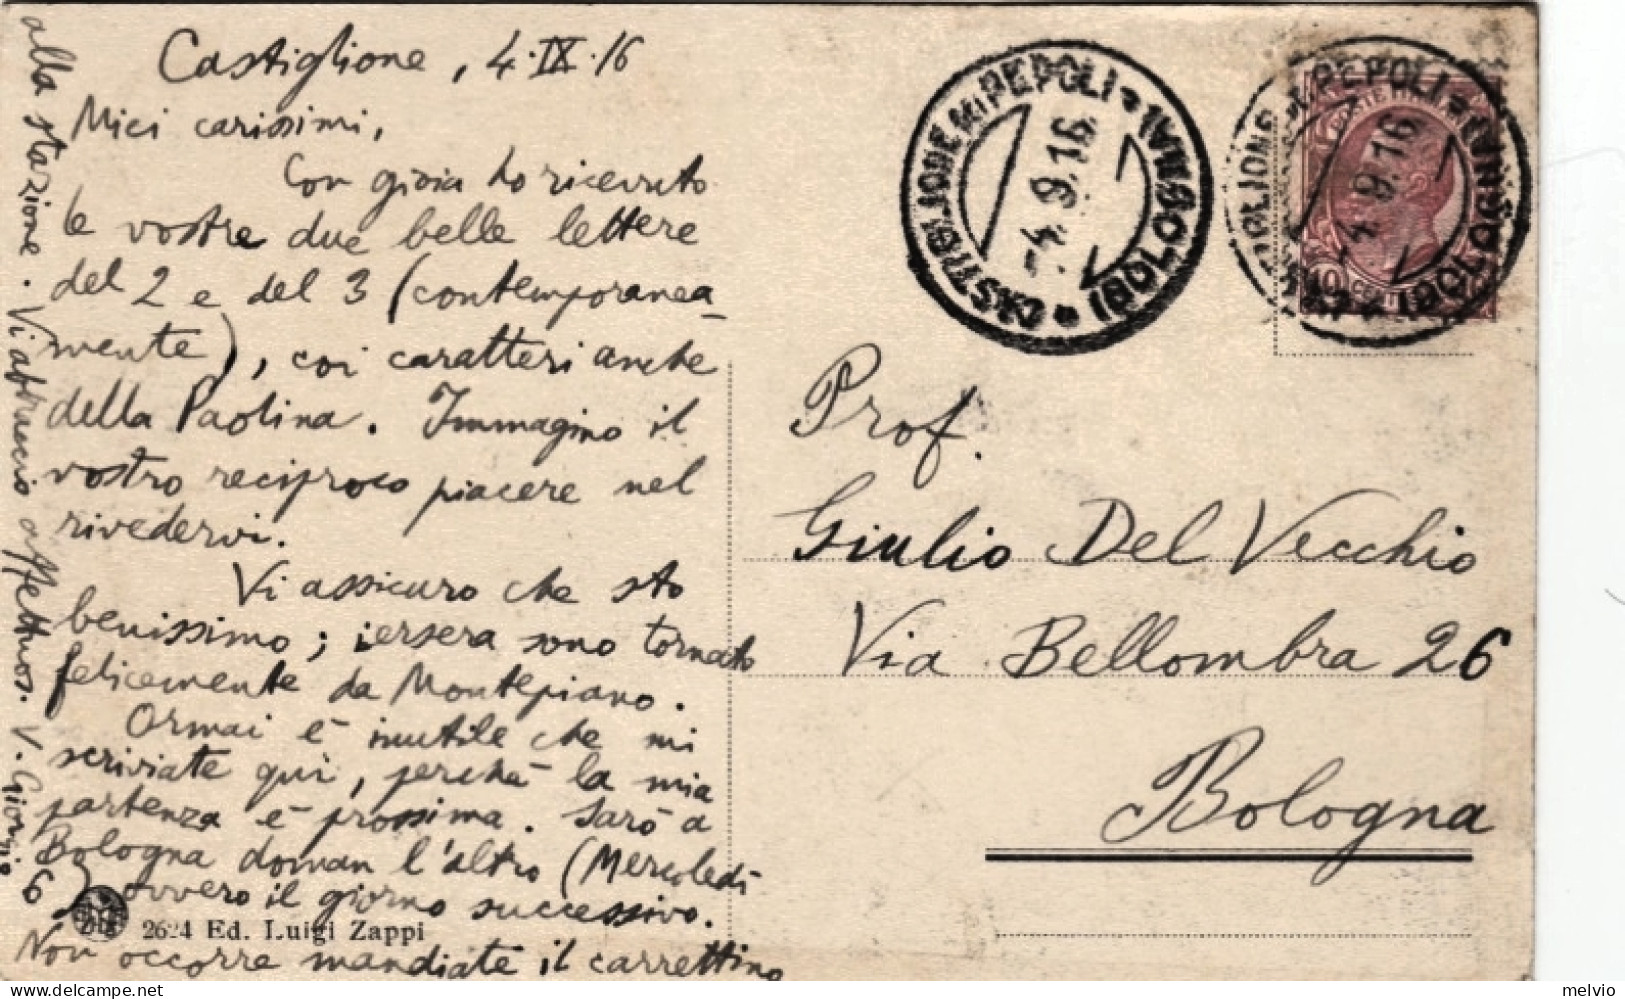 Castiglione, 4·IX·16
Miei carissimi,
Con gioia ho ricevuto
le vostre due belle lettere
del 2 e del 3 (contemporanea-
mente), coi caratteri anche
della Paolina. Immagino il
vostro reciproco piacere nel
rivedervi.
Vi assicuro che sto
benissimo; iersera sono tornato
felicemente da Montepiano.
Ormai è inutile che mi
scriviate qui, perchè la mia
partenza è prossima. Sarò a
Bologna doman l'altro (Mercoledì
6) ovvero il giorno successivo.
Non occorre mandiate il carrettino
alla stazione. Vi abbraccio affettuos. V. Giorgio
2624 Ed. Luigi Zappi
CASTIGLIONE DI PEPOLI (BOLOGNA)
-4.9.16
CASTIGLIONE DI PEPOLI (BOLOGNA)
-4.9.16
POSTE ITALIANE
10 CENT 10
Prof.
Giulio Del Vecchio
Via Bellombra 26
Bologna
melvio
www.delcampe.net